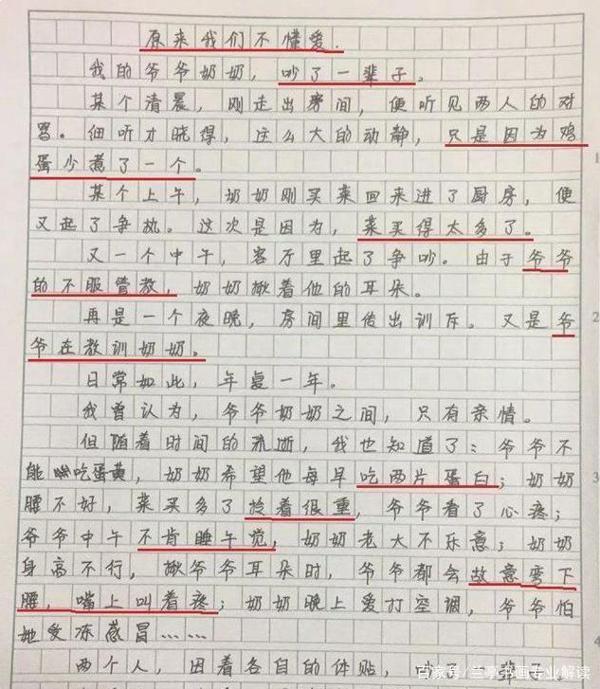 原来我们不懂爱.
我的爷爷奶奶，吵了一辈子。
某个清晨，刚走出房间，便听见两人的对
骂。细听才晓得，这么大的动静，只是因为鸡
蛋少煮了一个。
某个上午，奶奶刚买菜回来进了厨房，便
又起了争执。这次是因为，菜买得太多了。
又一个中午，客厅里起了争吵。由于爷爷
的不服管教，奶奶揪着他的耳朵。
再是一个夜晚，房间里传出训斥。又是爷
爷在教训奶奶。
日常如此，年复一年。
我曾认为，爷爷奶奶之间，只有亲情。
但随着时间的流逝，我也知道了：爷爷不
能吃蛋黄，奶奶希望他每早吃两片蛋白；奶奶
腰不好，菜买多了拎着很重，爷爷看了心疼；
爷爷中午不肯睡午觉，奶奶老大不乐意；奶奶
身高不行，揪爷爷耳朵时，爷爷都会故意弯下
腰，嘴上叫着疼；奶奶晚上爱打空调，爷爷怕
她受冻感冒……
两个人，因着各自的体贴，了一辈子
百家号/兰亭书画专业解读
1
2
3
4